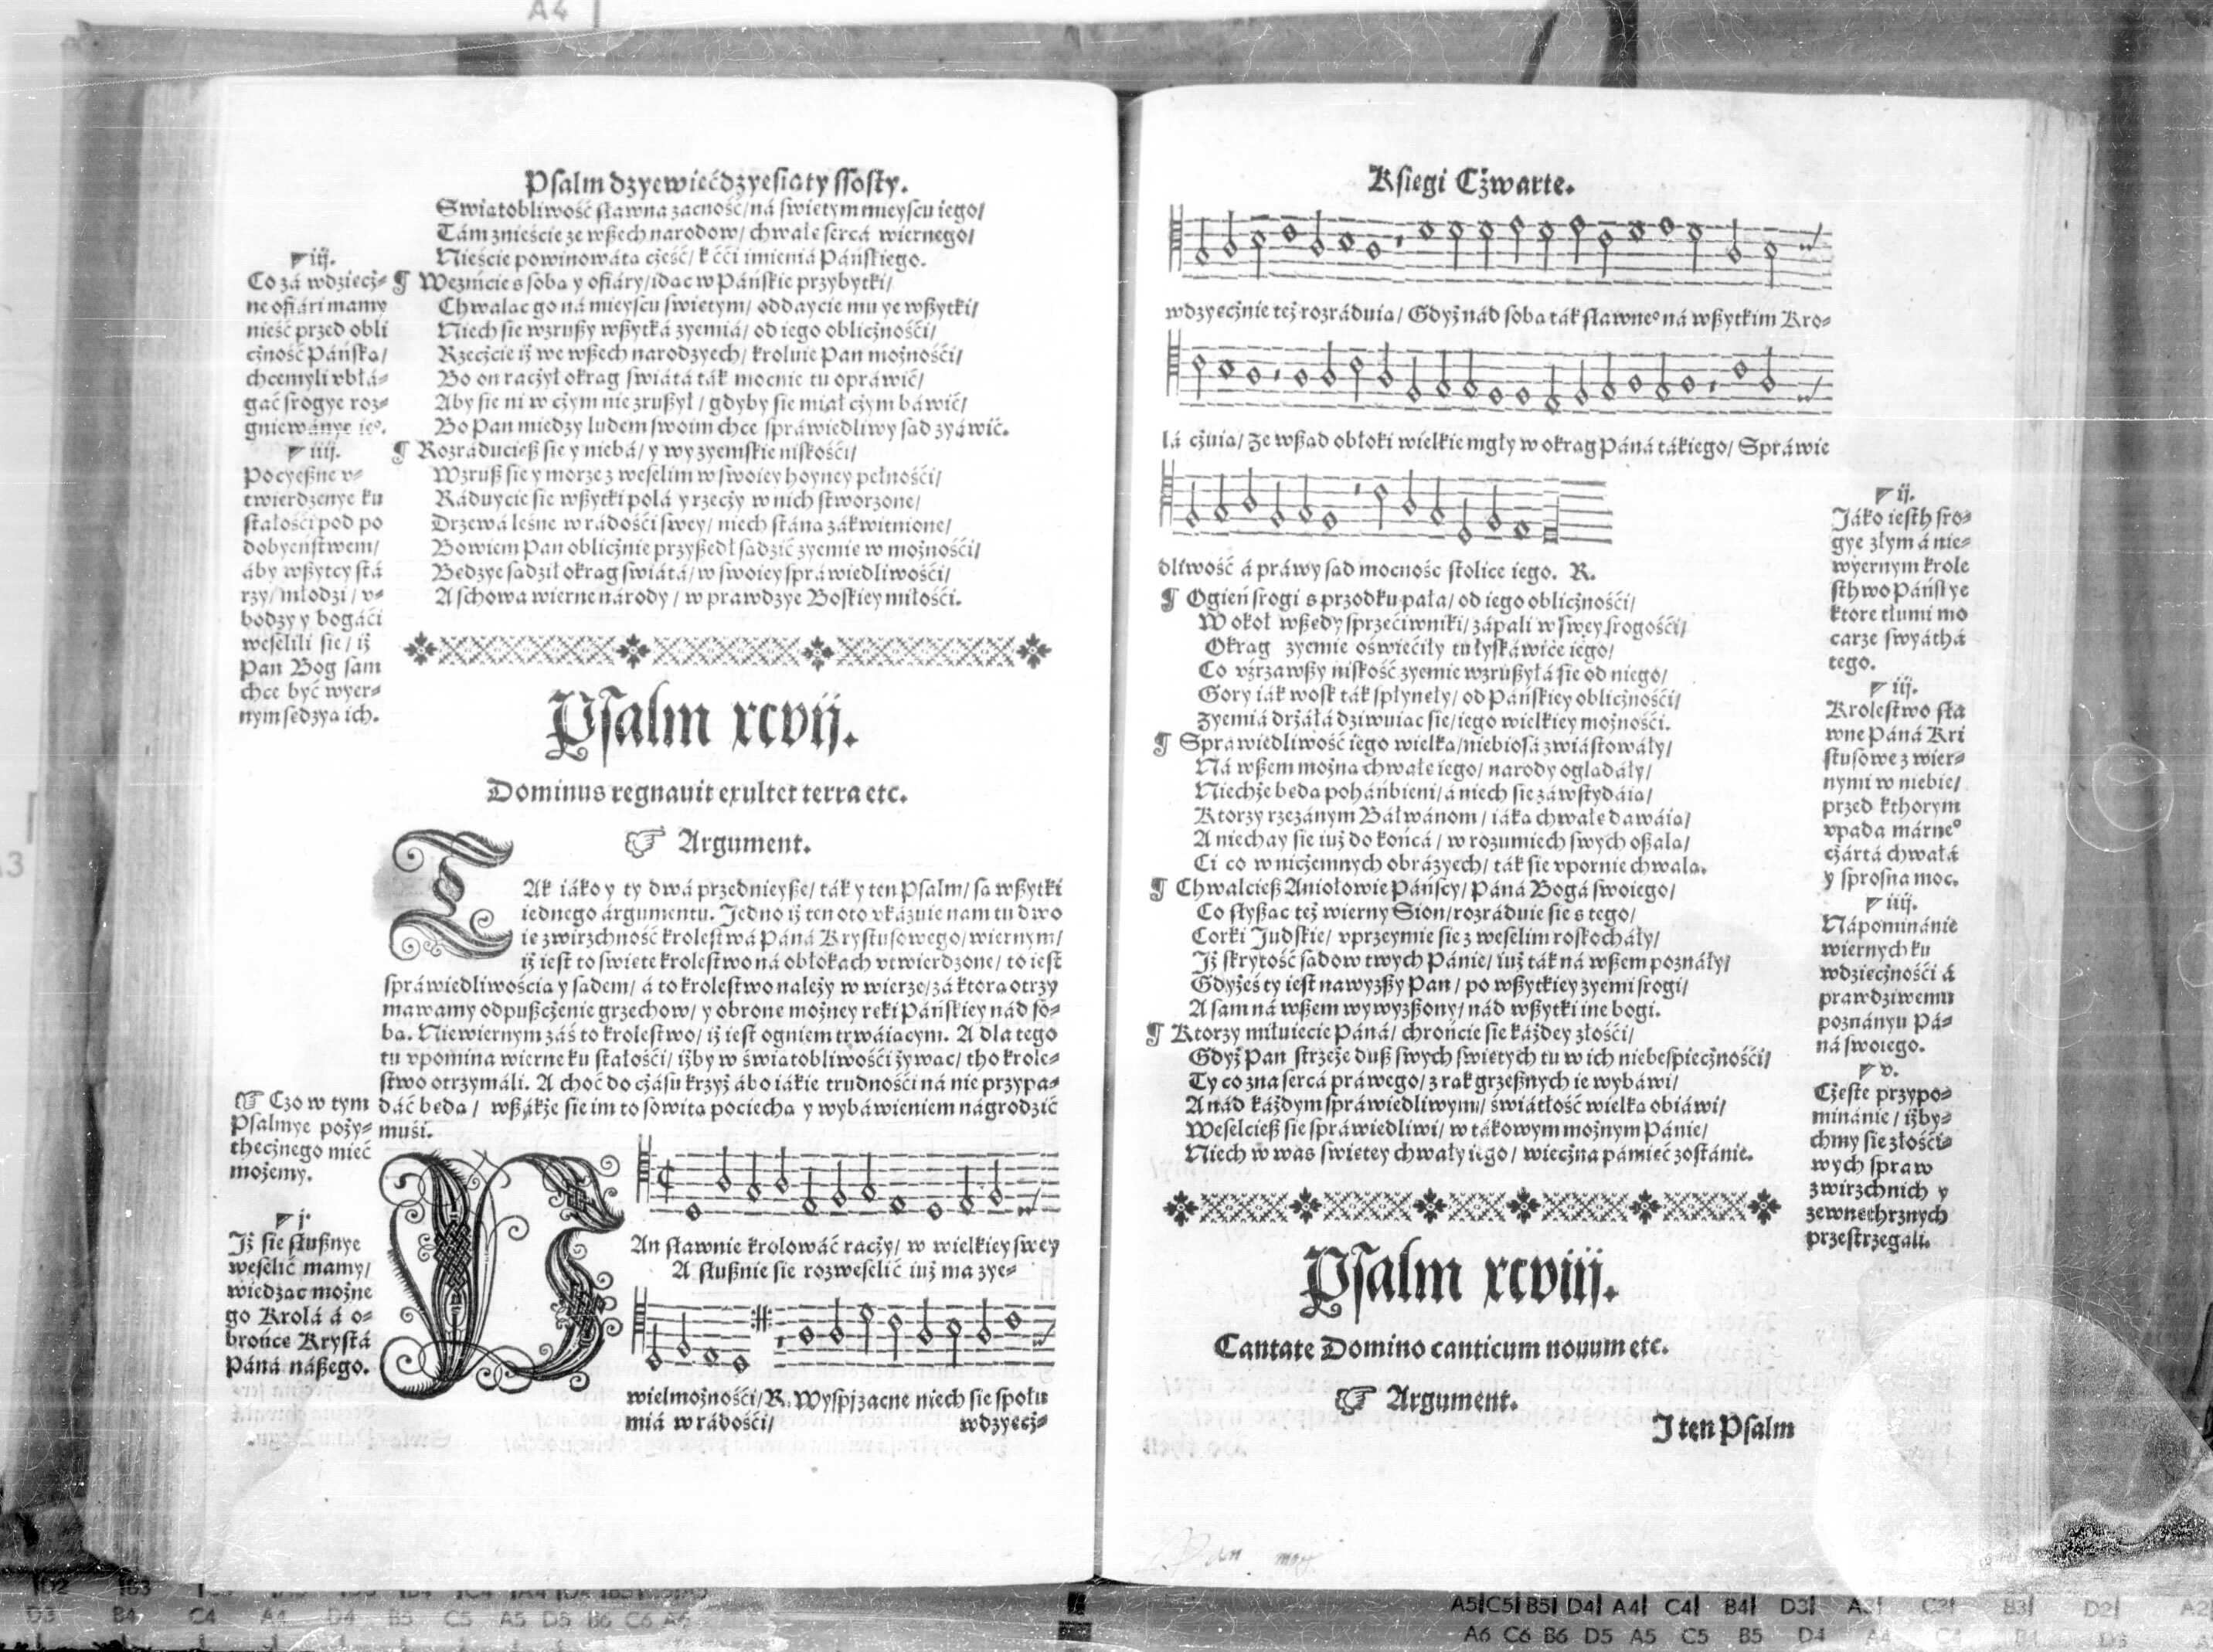 Psalm dzyewiećdzyesiąty ssosty.
Swiątobliwość sławna zacność/ ná swiętym mieyscu iego/
Tám znieście ze wßech narodow/ chwałę sercá wiernego/
Nieście powinowáta cześć/ k ćci imienia Páńskiego.
¶ Wezmicie s sobą y ofiáry/ idąc w Páńskie przybytki/
Chwaląc go ná mieyscu swiętym/ oddaycie mu ye wßytki/
Niech sie wzrußy wßytká zyemiá/ od iego obliczności/
Rzeczcie iż we wßech narodzyech/ kroluie Pan możności/
Bo on raczył okrąg swiátá ták mocnie tu opráwić/
Aby sie ni w czym nie zrußył/ gdyby sie miał czym báwić/
Bo Pan miedzy ludem swoim chce spráwiedliwy sąd zyáwić.
¶ Rozráduciesz sie y niebá/ y wy zyemskie niskości/
Wzruß sie y morze z weselim w swoiey hoyney pełności/
Ráduycie sie wßytki polá y rzeczy w nich stworzone/
Drzewá leśne w rádości swey/ niech stána zákwitnione/
Bowiem Pan oblicznie przyßedł sądzić zyemie w możności/
Bedzye sądził okrąg swiátá/ w swoiey spráwiedliwości/
A schowa wierne národy/ w prawdzye Boskiey miłości.
iij.
Co zá wdziecz-
ne ofiári mamy
nieść przed obli
czność Páńska/
chcemyli vbłá-
gáć srogye roz-
gniewánye ieº.
iiij.
Pocyeßne v-
twierdzenye ku
stałości pod po
dobyeństwem/
áby wßytcy stá
rzy/ młodzi/ v-
bodzy y bogáći
weselili sie/ iż
Pan Bog sam
chce być wyer-
nym sędzya ich.
Psalm xcvij.
Dominus regnauit exultet terra etc.
☞ Argument.
TAk iáko y ty dwá przednieyße/ ták y ten Psalm/ są wßytki
iednego árgumentu. Jedno iż ten oto vkázuie nam tu dwo
ie zwirzchność krolestwá Páná Krystusowego/ wiernym/
iż iest to swięte krolestwo ná obłokach vtwierdzone/ to iest
spráwiedliwością y sądem/ á to krolestwo należy w wierze/ zá ktora otrzy
mawamy odpußczenie grzechow/ y obronę możney ręki Páńskiey nád so-
ba. Niewiernym záś to krolestwo/ iż iest ogniem trwáiącym. A dla tego
tu vpomina wierne ku stałości/ iżby w świątobliwości żywąc/ tho krole-
stwo otrzymáli. A choć do czásu krzyż ábo iákie trudności ná nie przypa-
dáć będą/ wßákże sie im to sowita pociecha y wybáwieniem nágrodzić
muśi.
☞ Czo w tym
Psalmye poży-
thecznego mieć
możemy.
j.
Iż sie słußnye
weselić mamy/
wiedząc możne
go Krolá á o-
brońce Krystá
Páná náßego.
PAn sławnie krolowáć raczy/ w wielkiey swey
A słußnie sie rozweselić iuż ma zye-
wielmożności/ R. Wyspy zacne niech sie społu
miá w rádości/ wdzyecz-
Ksiegi Czwarte.
wdzyecznie też rozráduią/ Gdyż nád sobą ták sławneº ná wßytkim Kro-
lá czuią/ Ze wßad obłoki wielkie mgły w okrąg Páná tákiego/ Spráwie
dliwość á práwy sąd mocność stolice iego. R.
¶ Ogień srogi s przodku pała/ od iego obliczności/
W okoł wßędy sprzeciwniki/ zápali w swey srogości/
Okrąg zyemie oświećiły tu łyskáwice iego/
Co vźrzawßy niskość zyemie wzrußyłá sie od niego/
Gory iák wosk ták spłynęły/ od Páńskiey obliczności/
Zyemiá drżáłá dziwuiąc sie/ iego wielkiey możności.
¶ Spráwiedliwość iego wielką/ niebiosá zwiástowáły/
Ná wßem możną chwałę iego/ narody oglądáły/
Niechże będą poháńbieni/ á niech sie záwstydáią/
Ktorzy rzezánym Báłwánom/ iáką chwałę dawáią/
A niechay sie iuż do końcá/ w rozumiech swych oßalą/
Ci co w niczemnych obrázyech/ ták sie vpornie chwalą.
¶ Chwalcieß Aniołowie Páńscy/ Páná Bogá swoiego/
Co słyßąc też wierny Sion/ rozráduie sie s tego/
Corki Judskie/ vprzeymie sie z weselim roskocháły/
Iż skrytość sądow twych Pánie/ iuż ták ná wßem poznáły/
Gdyżeś ty iest nawyzßy Pan/ po wßytkiey zyemi srogi/
A sam ná wßem wywyzßony/ nád wßytki ine bogi.
¶ Ktorzy miłuiecie Páná/ chrońcie sie káżdey złości/
Gdyż Pan strzeże duß swych swiętych tu w ich niebespieczności/
Ty co zna sercá práwego/ z rąk grzeßnych ie wybáwi/
A nád káżdym spráwiedliwym/ świátłość wielką obiáwi/
Weselcieß sie spráwiedliwi/ w tákowym możnym Pánie/
Niech w was swiętey chwały iego/ wieczna pámieć zostánie.
ij.
Jáko iesth sro-
gye złym á nie-
wyernym krole
sthwo Páństye
ktore tłumi mo
carze swyáthá
tego.
iij.
Krolestwo słá
wne Páná Kri
stusowe z wier-
nymi w niebie/
przed kthorym
vpada márneº
czártá chwałá
y sprosna moc.
iiij.
Nápominánie
wiernych ku
wdzieczności á
prawdziwemu
poznányu Pá-
ná swoiego.
v.
Częste przypo-
minánie/ iżby-
chmy sie złości-
wych spraw
zwirzchnich y
zewnethrznych
przestrzegali.
Psalm xcviij.
Cantate Domino canticum nouum etc.
☞ Argument.
I ten Psalm
A4
A3
D2 B3
D3 B4 C4 A4 D4 B5 C5 A5 D5 B6 C6 A6
A5 C5 B5 D4 A4 C4 B4 D3 A3 C2 B3 D2 A2
A6 C6 B6 D5 A5 C5 B5 D4 A4 C4 B4 D3